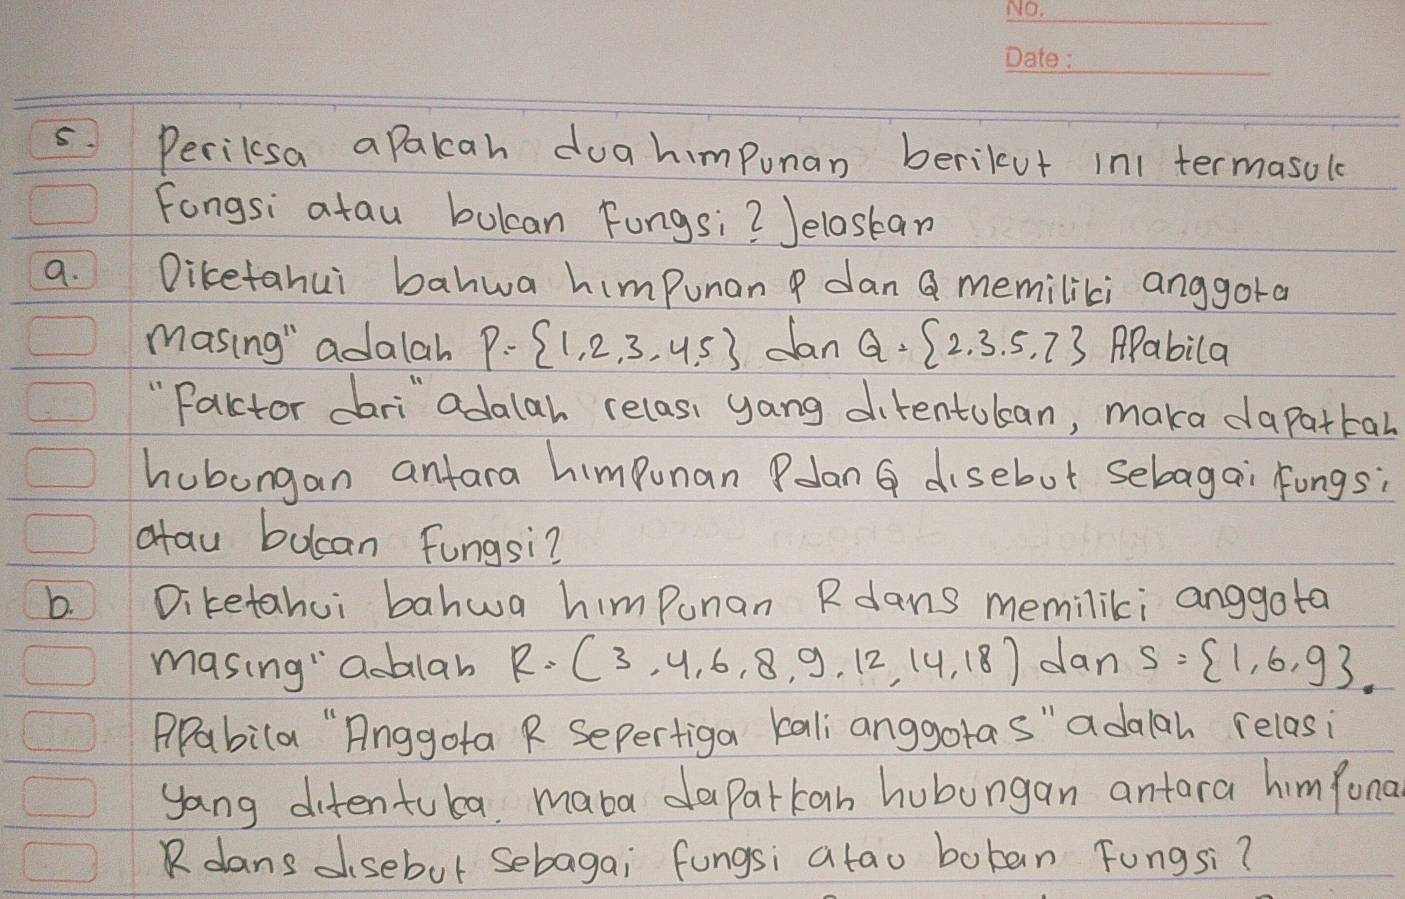 No.
Date :
5. Periksa apakah dua himpunan berikut ini termasuk
fungsi atau bukan fungsi? Jelaskan
a. Diketahui bahwa himpunan P dan Q memiliki anggota
masing" adalah P = {1, 2, 3, 4, 5} dan Q = {2, 3, 5, 7} Apabila
"Faktor dari" adalah relasi yang ditentukan, maka dapatkah
hubungan antara himpunan P dan Q disebut sebagai fungsi
atau bukan fungsi?
b. Diketahui bahwa himpunan R dan S memiliki anggota
masing" adalah R = (3, 4, 6, 8, 9, 12, 14, 18) dan S = {1, 6, 9}.
Apabila "Anggota R sepertiga kali anggota S" adalah relasi
yang ditentuka, maka dapatkah hubungan antara himpuna
R dan S disebut sebagai fungsi atau bukan fungsi?